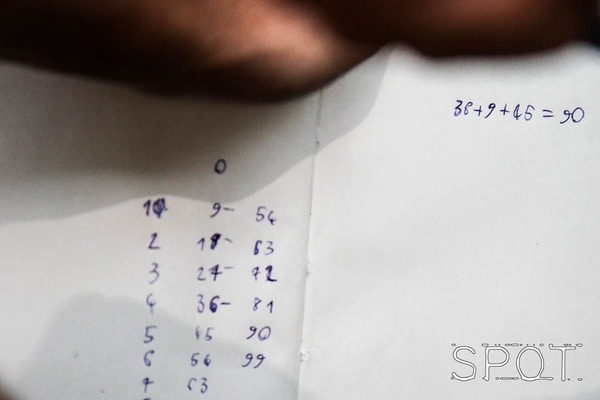 36+9+45=90
0
1 9- 54
2 18- 63
3 27- 72
4 36- 81
5 45 90
6 54 99
7 63
SPOT.